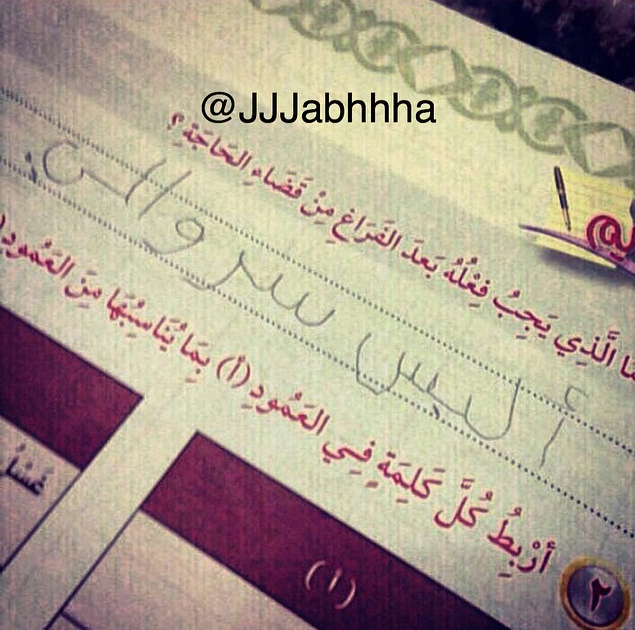 @JJJabhhha
ما الَّذِي يَجِبُ فِعْلُهُ بَعدَ الفَرَاغِ مِنْ قَضَاءِ الحَاجَةِ ؟
ألبس سروالي.
٢ أرْبِطُ كُلَّ كَلِمَةٍ فِي العَمُودِ (أ) بِمَا يُنَاسِبُهَا مِنَ العَمُودِ
(أ)